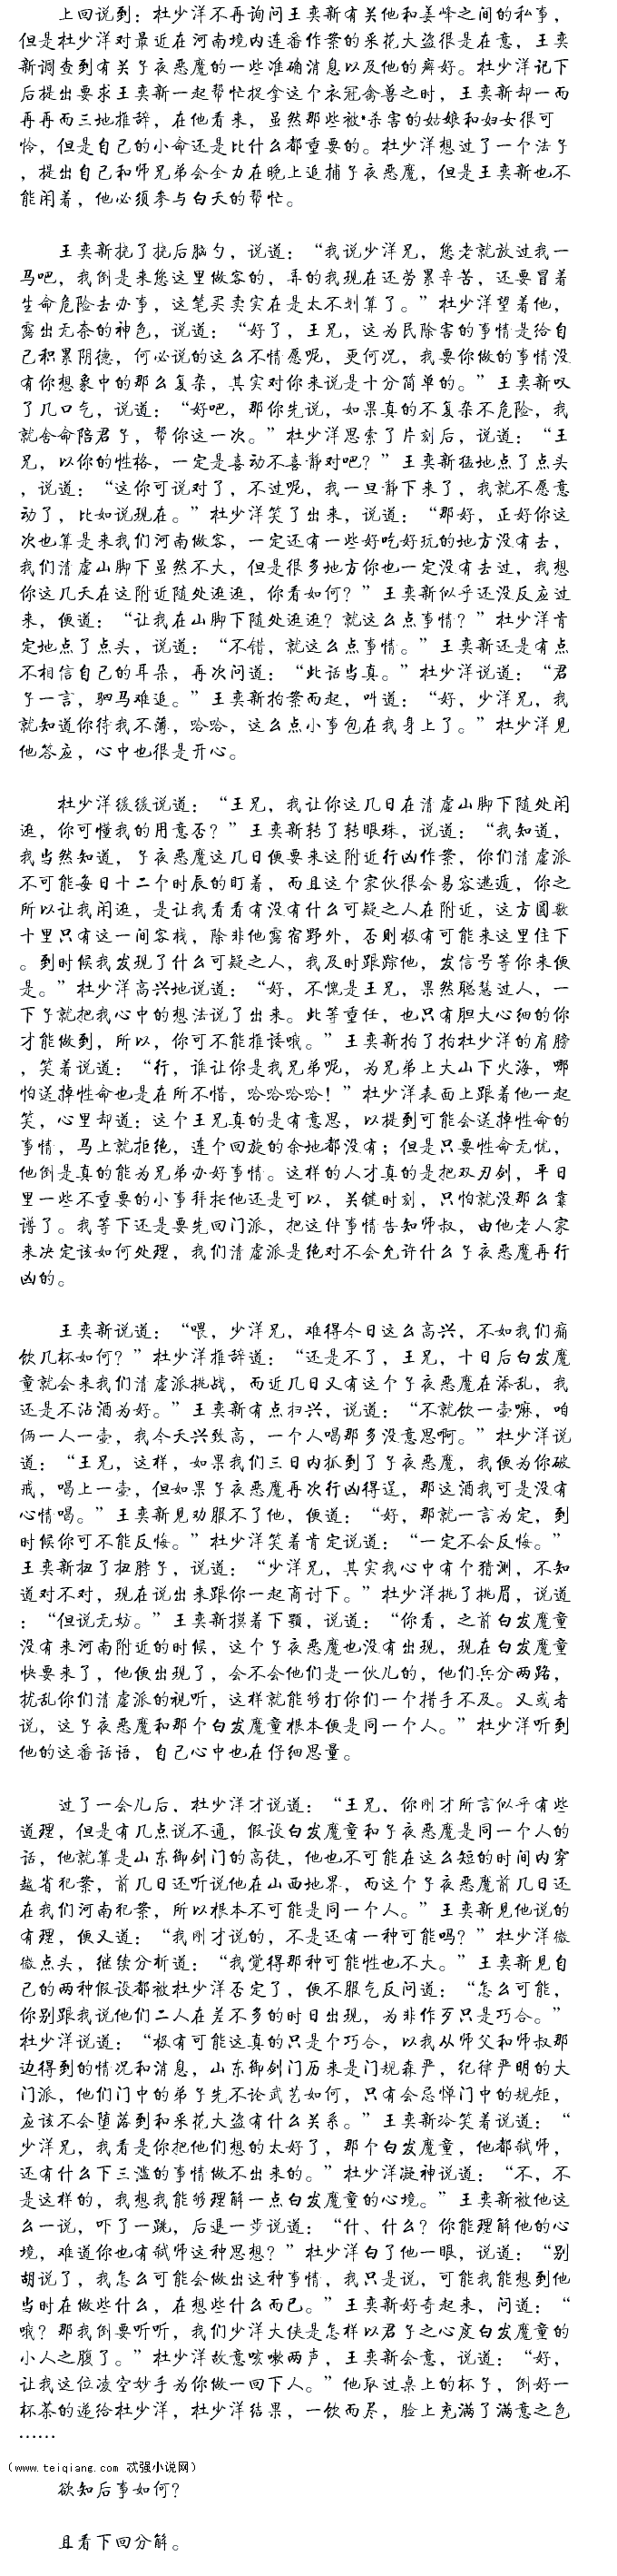 上回说到：杜少洋不再询问王奕新有关他和姜峰之间的私事，
但是杜少洋对最近在河南境内连番作案的采花大盗很是在意，王奕
新调查到有关子夜恶魔的一些准确消息以及他的癖好。杜少洋记下
后提出要求王奕新一起帮忙捉拿这个衣冠禽兽之时，王奕新却一而
再再而三地推辞，在他看来，虽然那些被·杀害的姑娘和妇女很可
怜，但是自己的小命还是比什么都重要的。杜少洋想过了一个法子
，提出自己和师兄弟会全力在晚上追捕子夜恶魔，但是王奕新也不
能闲着，他必须参与白天的帮忙。
王奕新挠了挠后脑勺，说道：“我说少洋兄，您老就放过我一
马吧，我倒是来您这里做客的，弄的我现在还劳累辛苦，还要冒着
生命危险去办事，这笔买卖实在是太不划算了。”杜少洋望着他，
露出无奈的神色，说道：“好了，王兄，这为民除害的事情是给自
己积累阴德，何必说的这么不情愿呢，更何况，我要你做的事情没
有你想象中的那么复杂，其实对你来说是十分简单的。”王奕新叹
了几口气，说道：“好吧，那你先说，如果真的不复杂不危险，我
就舍命陪君子，帮你这一次。”杜少洋思索了片刻后，说道：“王
兄，以你的性格，一定是喜动不喜静对吧？”王奕新猛地点了点头
，说道：“这你可说对了，不过呢，我一旦静下来了，我就不愿意
动了，比如说现在。”杜少洋笑了出来，说道：“那好，正好你这
次也算是来我们河南做客，一定还有一些好吃好玩的地方没有去，
我们清虚山脚下虽然不大，但是很多地方你也一定没有去过，我想
你这几天在这附近随处逛逛，你看如何？”王奕新似乎还没反应过
来，便道：“让我在山脚下随处逛逛？就这么点事情？”杜少洋肯
定地点了点头，说道：“不错，就这么点事情。”王奕新还是有点
不相信自己的耳朵，再次问道：“此话当真。”杜少洋说道：“君
子一言，驷马难追。”王奕新拍案而起，叫道：“好，少洋兄，我
就知道你待我不薄，哈哈，这么点小事包在我身上了。”杜少洋见
他答应，心中也很是开心。
杜少洋缓缓说道：“王兄，我让你这几日在清虚山脚下随处闲
逛，你可懂我的用意否？”王奕新转了转眼珠，说道：“我知道，
我当然知道，子夜恶魔这几日便要来这附近行凶作案，你们清虚派
不可能每日十二个时辰的盯着，而且这个家伙很会易容逃遁，你之
所以让我闲逛，是让我看看有没有什么可疑之人在附近，这方圆数
十里只有这一间客栈，除非他露宿野外，否则极有可能来这里住下
。到时候我发现了什么可疑之人，我及时跟踪他，发信号等你来便
是。”杜少洋高兴地说道：“好，不愧是王兄，果然聪慧过人，一
下子就把我心中的想法说了出来。此等重任，也只有胆大心细的你
才能做到，所以，你可不能推诿哦。”王奕新拍了拍杜少洋的肩膀
，笑着说道：“行，谁让你是我兄弟呢，为兄弟上大山下火海，哪
怕送掉性命也是在所不惜，哈哈哈哈！”杜少洋表面上跟着他一起
笑，心里却道：这个王兄真的是有意思，以提到可能会送掉性命的
事情，马上就拒绝，连个回旋的余地都没有；但是只要性命无忧，
他倒是真的能为兄弟办好事情。这样的人才真的是把双刃剑，平日
里一些不重要的小事拜托他还是可以，关键时刻，只怕就没那么靠
谱了。我等下还是要先回门派，把这件事情告知师叔，由他老人家
来决定该如何处理，我们清虚派是绝对不会允许什么子夜恶魔再行
凶的。
王奕新说道：“喂，少洋兄，难得今日这么高兴，不如我们痛
饮几杯如何？”杜少洋推辞道：“还是不了，王兄，十日后白发魔
童就会来我们清虚派挑战，而近几日又有这个子夜恶魔在添乱，我
还是不沾酒为好。”王奕新有点扫兴，说道：“不就饮一壶嘛，咱
俩一人一壶，我今天兴致高，一个人喝那多没意思啊。”杜少洋说
道：“王兄，这样，如果我们三日内抓到了子夜恶魔，我便为你破
戒，喝上一壶，但如果子夜恶魔再次行凶得逞，那这酒我可是没有
心情喝。”王奕新见劝服不了他，便道：“好，那就一言为定，到
时候你可不能反悔。”杜少洋笑着肯定说道：“一定不会反悔。”
王奕新扭了扭脖子，说道：“少洋兄，其实我心中有个猜测，不知
道对不对，现在说出来跟你一起商讨下。”杜少洋挑了挑眉，说道
：“但说无妨。”王奕新摸着下颚，说道：“你看，之前白发魔童
没有来河南附近的时候，这个子夜恶魔也没有出现，现在白发魔童
快要来了，他便出现了，会不会他们是一伙儿的，他们兵分两路，
扰乱你们清虚派的视听，这样就能够打你们一个措手不及。又或者
说，这子夜恶魔和那个白发魔童根本便是同一个人。”杜少洋听到
他的这番话语，自己心中也在仔细思量。
过了一会儿后，杜少洋才说道：“王兄，你刚才所言似乎有些
道理，但是有几点说不通，假设白发魔童和子夜恶魔是同一个人的
话，他就算是山东御剑门的高徒，他也不可能在这么短的时间内穿
越省犯案，前几日还听说他在山西地界，而这个子夜恶魔前几日还
在我们河南犯案，所以根本不可能是同一个人。”王奕新见他说的
有理，便又道：“我刚才说的，不是还有一种可能吗？”杜少洋微
微点头，继续分析道：“我觉得那种可能性也不大。”王奕新见自
己的两种假设都被杜少洋否定了，便不服气反问道：“怎么可能，
你别跟我说他们二人在差不多的时日出现，为非作歹只是巧合。”
杜少洋说道：“极有可能这真的只是个巧合，以我从师父和师叔那
边得到的情况和消息，山东御剑门历来是门规森严，纪律严明的大
门派，他们门中的弟子先不论武艺如何，只有会忌惮门中的规矩，
应该不会堕落到和采花大盗有什么关系。”王奕新冷笑着说道：“
少洋兄，我看是你把他们想的太好了，那个白发魔童，他都弑师，
还有什么下三滥的事情做不出来的。”杜少洋凝神说道：“不，不
是这样的，我想我能够理解一点白发魔童的心境。”王奕新被他这
么一说，吓了一跳，后退一步说道：“什、什么？你能理解他的心
境，难道你也有弑师这种思想？”杜少洋白了他一眼，说道：“别
胡说了，我怎么可能会做出这种事情，我只是说，可能我能想到他
当时在做些什么，在想些什么而已。”王奕新好奇起来，问道：“
哦？那我倒要听听，我们少洋大侠是怎样以君子之心度白发魔童的
小人之腹了。”杜少洋故意咳嗽两声，王奕新会意，说道：“好，
让我这位凌空妙手为你做一回下人。”他取过桌上的杯子，倒好一
杯茶的递给杜少洋，杜少洋结果，一饮而尽，脸上充满了满意之色
……
（www.teiqiang.com 忒强小说网）
欲知后事如何？
且看下回分解。